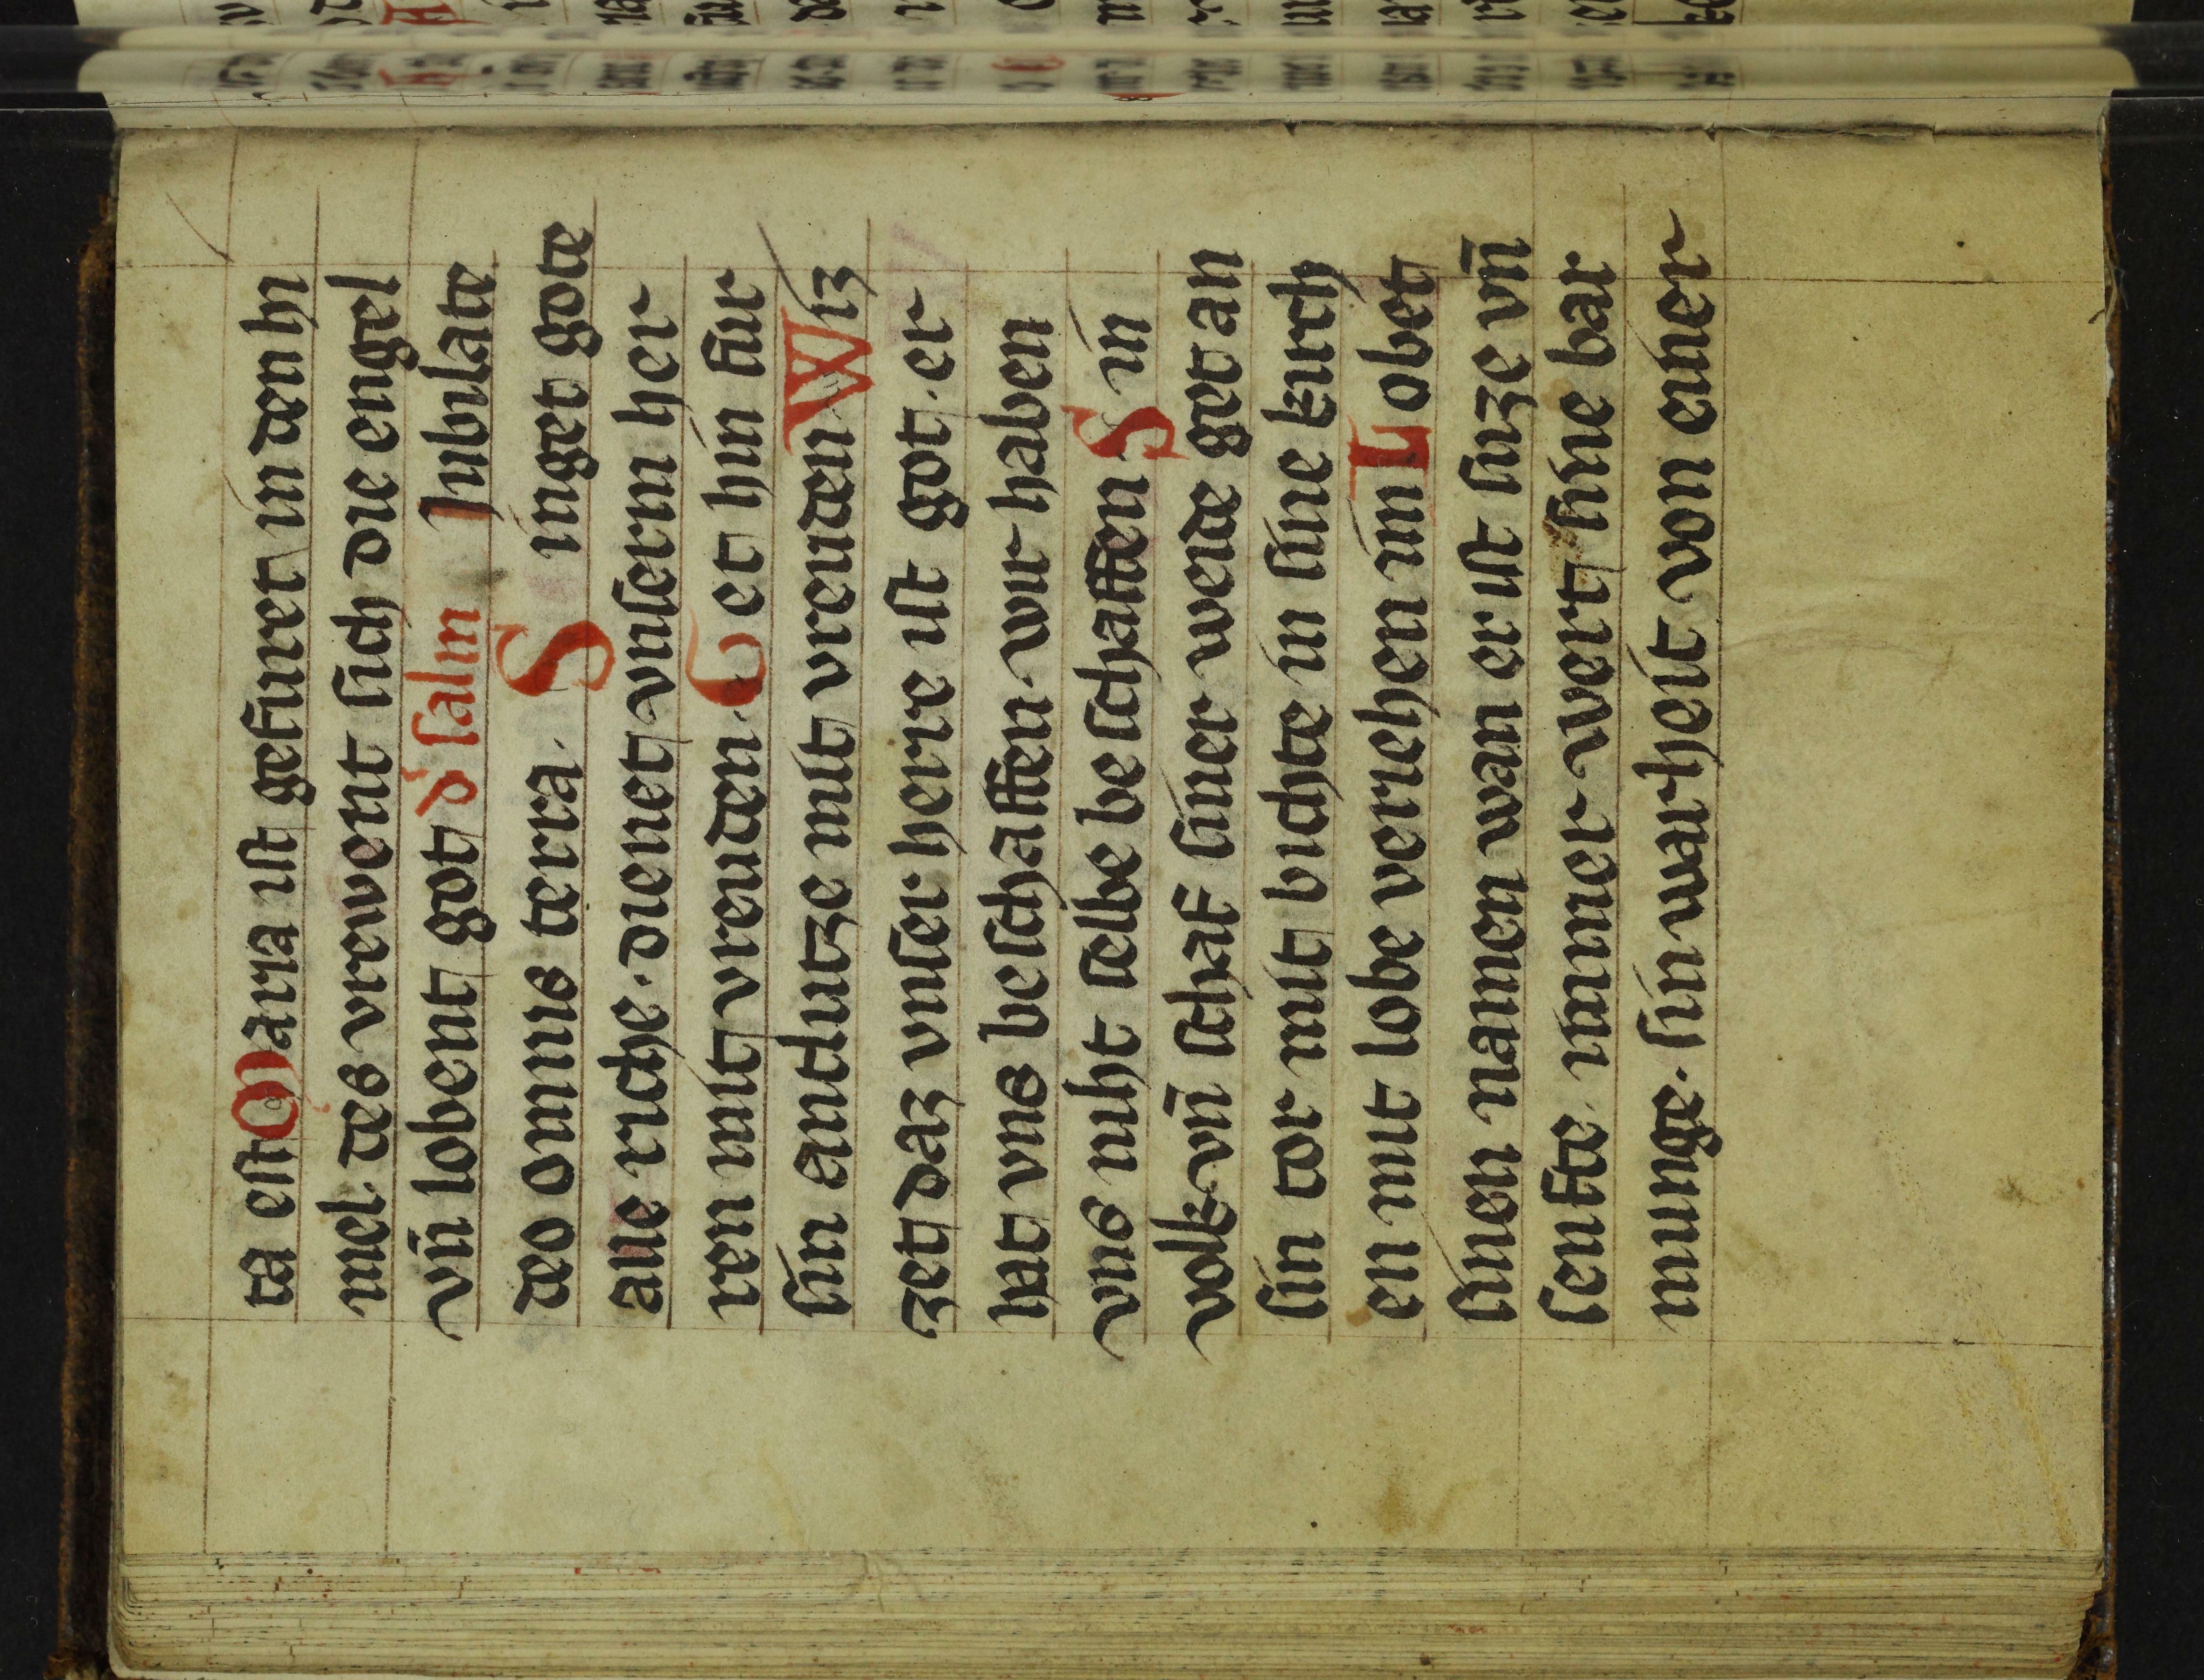 ta eſt Maria iſt gefuret in den hi
mel. des vrewent ſich die engel
vn̄ lobent got d' ſalm Jubilate
deo omnis terra. Singet gote
alle riche. dienet vnſerm her
ren mit vreuden. Get hin fur
ſin antlutze mit vreuden Wiz
zet daz vnſer herre iſt got. er
hat vns beſchaffen. wir haben
vns niht ſelbe beſchaffen. Sin
volk. vn̄ ſchaf ſiner weide get an
ſin tor mit bichte in ſine kirch
en mit lobe veriehen im Lobet
ſinen namen wan er iſt ſuze vn̄
ſenfte. immer wert ſine bar
munge. ſin warheit von einer